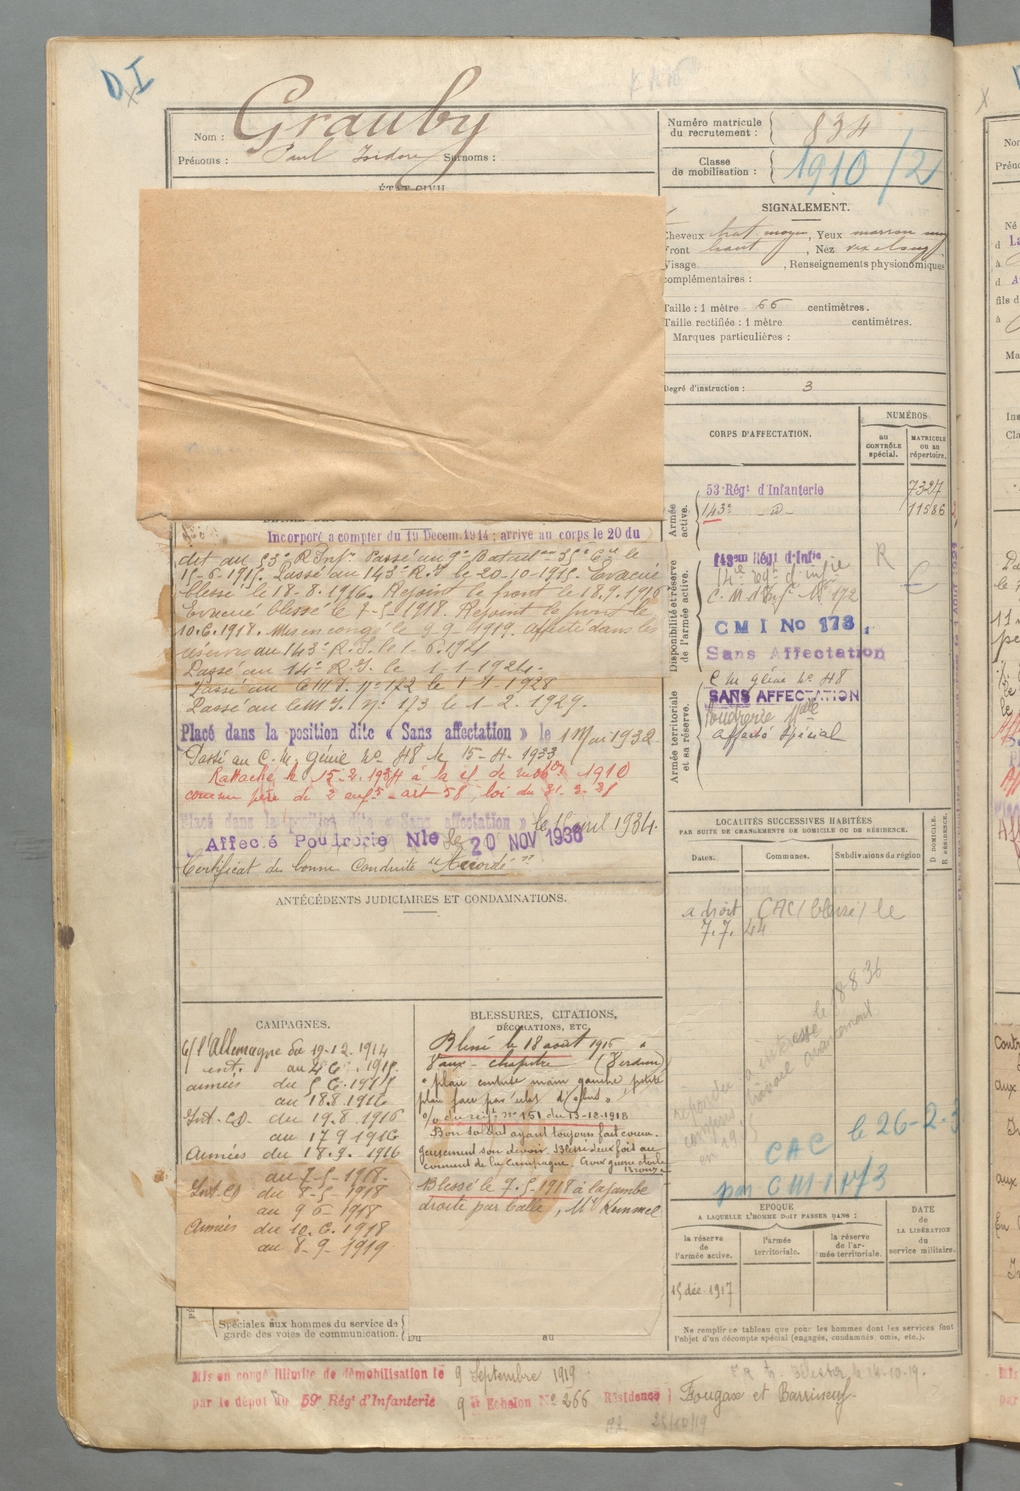 Nom : Grauby
Prénoms : Paul Isidore Surnoms :
Numéro matricule du recrutement : 834
Classe de mobilisation : 1910/21
ÉTAT CIVIL
SIGNALEMENT.
Cheveux chat. moyen, Yeux marron moy
Front haut, Nez
Visage , Renseignements physionomiques
complémentaires :
Taille : 1 mètre 66 centimètres.
Taille rectifiée : 1 mètre centimètres.
Marques particulières :
Degré d'instruction : 3
CORPS D'AFFECTATION.
NUMÉROS
au CONTRÔLE spécial.
MATRICULE ou au répertoire.
Armée active.
53e Régt d'Infanterie 7327
143e -d- 11586
Disponibilité et réserve de l'armée active.
143eme Régt d'Infie R
14e régt d'infie
C. M. d'Infie No 172
CMI No 173.
Sans Affectation
Armée territoriale et sa réserve.
C. M. génie No 48
SANS AFFECTATION
Poudrerie Nale
Affecté Spécial
Incorporé à compter du 19 Décem. 1914 ; arrivé au corps le 20 du
dit au 53e R. Infie Passé au 9e Bataillon le
15-6-1915. Passé au 143e R.I. le 20-10-1915. Évacué
blessé le 18-8-1916. Rejoint le front le 18.9.1916
Evacué blessé le 7-5-1918. Rejoint le front le
10.6.1918. Mis en congé le 9-9-1919. Affecté dans les
réserves au 143e R.I. le 1-6-1921
Passé au 14e R.I. le 1-1-1924.
Passé au CMI. No 172 le 1-1-1928
Passé au CMI. No 173 le 1-2.1929.
Placé dans la position dite « Sans affectation » le 1 Mai 1932
Passé au C. M. Génie No 48 le 15-4-1933
Rattaché le 15-2-1934 à la cl. de mobon 1910
comme père de 2 enfts - art 58, loi du 31-3-28
Placé dans la position dite « Sans affectation » le 15 avril 1934.
Affecté Poudrerie Nle le 20 NOV 1936
Certificat de bonne Conduite "Accordé"
ANTÉCÉDENTS JUDICIAIRES ET CONDAMNATIONS.
LOCALITÉS SUCCESSIVES HABITÉES
PAR SUITE DE CHANGEMENTS DE DOMICILE OU DE RÉSIDENCE.
Dates. Communes. Subdivisions de région D. DOMICILE. R. RÉSIDENCE.
a droit CAC (blessé) le
7.7.44
CAC le 26-2-3
par CMI 173
CAMPAGNES.
C/ l'Allemagne du 19-12-1914
int. au 4.6.1915
armées du 5.6.1915
au 18.8.1916
Int. CD. du 19.8.1916
au 17.9.1916
Armées du 18.9.1916
au 7-5-1918.
Int. CD du 8-5-1918
au 9.6.1918
Armées du 10.6.1918
au 8-9-1919
BLESSURES, CITATIONS, DÉCORATIONS, ETC.
Blessé le 18 août 1916 à
Vaux-Chapitre (Verdun)
"plaie contuse main gauche, petite
plaie face par éclat d'obus"
o/ du régt No 161 du 13-12-1918
Bon soldat ayant toujours fait coura-
geusement son devoir. Blessé deux fois au
cours de la Campagne. Croix guerre étoile
Bronze
Blessé le 7.5.1918 à la jambe
droite par balle, Mt Kemmel
Spéciales aux hommes du service de garde des voies de communication. Du au
ÉPOQUE
A LAQUELLE L'HOMME DOIT PASSER DANS :
la réserve de l'armée active.
l'armée territoriale.
la réserve de l'armée territoriale.
DATE de LA LIBÉRATION du service militaire.
15 déc. 1917
Ne remplir ce tableau que pour les hommes dont les services font
l'objet d'un décompte spécial (engagés, condamnés, omis, etc.).
Mis en congé illimité de démobilisation le 9 Septembre 1919
par le dépôt du 59e Régt d'Infanterie 9e Echelon No 266 Résidence Fougax et Barrineuf.